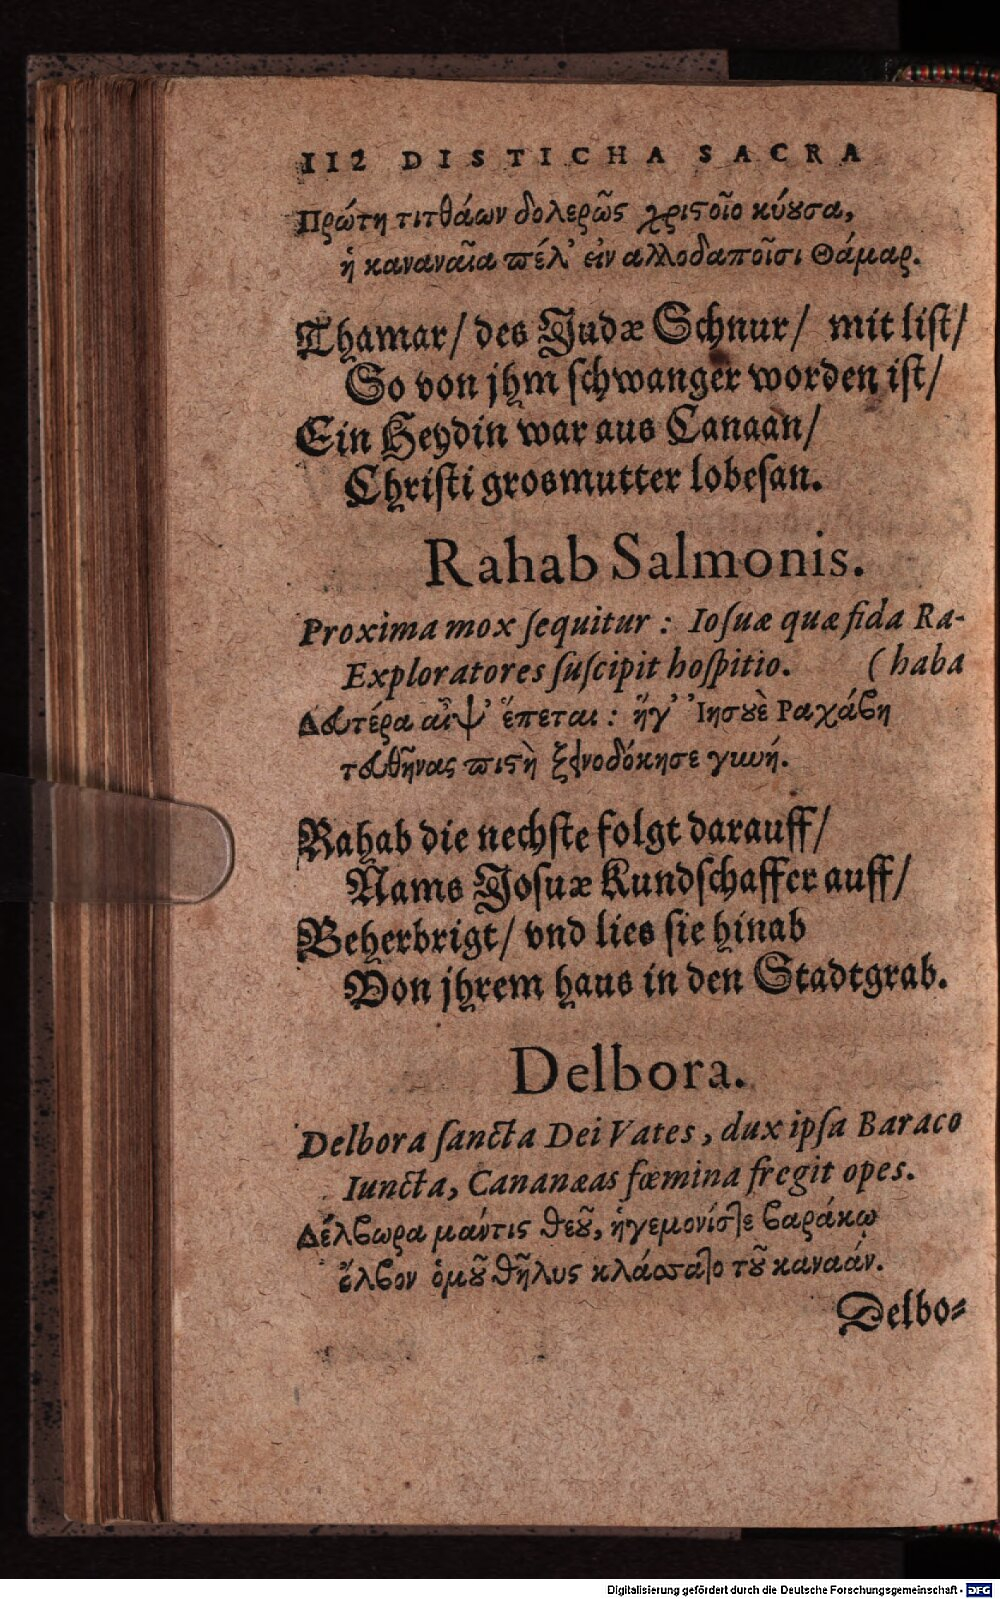 112 DISTICHA SACRA
Πρώτη τιτθάων δολερῶς χριστοῖο κύουσα,
ἡ καναναῖα πέλ' εἰν αλλοδαποῖσι Θάμαρ.
Thamar/ des Judæ Schnur/ mit liſt/
So von jhm ſchwanger worden iſt/
Ein Heydin war aus Canaan/
Chriſti grosmutter lobeſan.
Rahab Salmonis.
Proxima mox ſequitur : Ioſuæ quæ fida Ra-
Exploratores ſuſcipit hoſpitio. (haba
Δευτέρα αἶψ' ἕπεται : ἥγ' Ἰησουὲ Ραχάβη
τευθῆνας πιστὴ ξεινοδόκησε γυνή.
Rahab die nechſte folgt darauff/
Nams Joſuæ Kundſchaffer auff/
Beherbrigt/ vnd lies ſie hinab
Von jhrem haus in den Stadtgrab.
Delbora.
Delbora ſancta Dei Vates, dux ipſa Baraco
Iuncta, Cananæas fœmina fregit opes.
Δέλβωρα μάντις θεοῦ, ἡγεμονίστε βαράκῳ
ὄλβον ὁμοῦ θῆλυς κλάσσατο τοῦ καναάν.
Delbo⸗
Digitalisierung gefördert durch die Deutsche Forschungsgemeinschaft - DFG